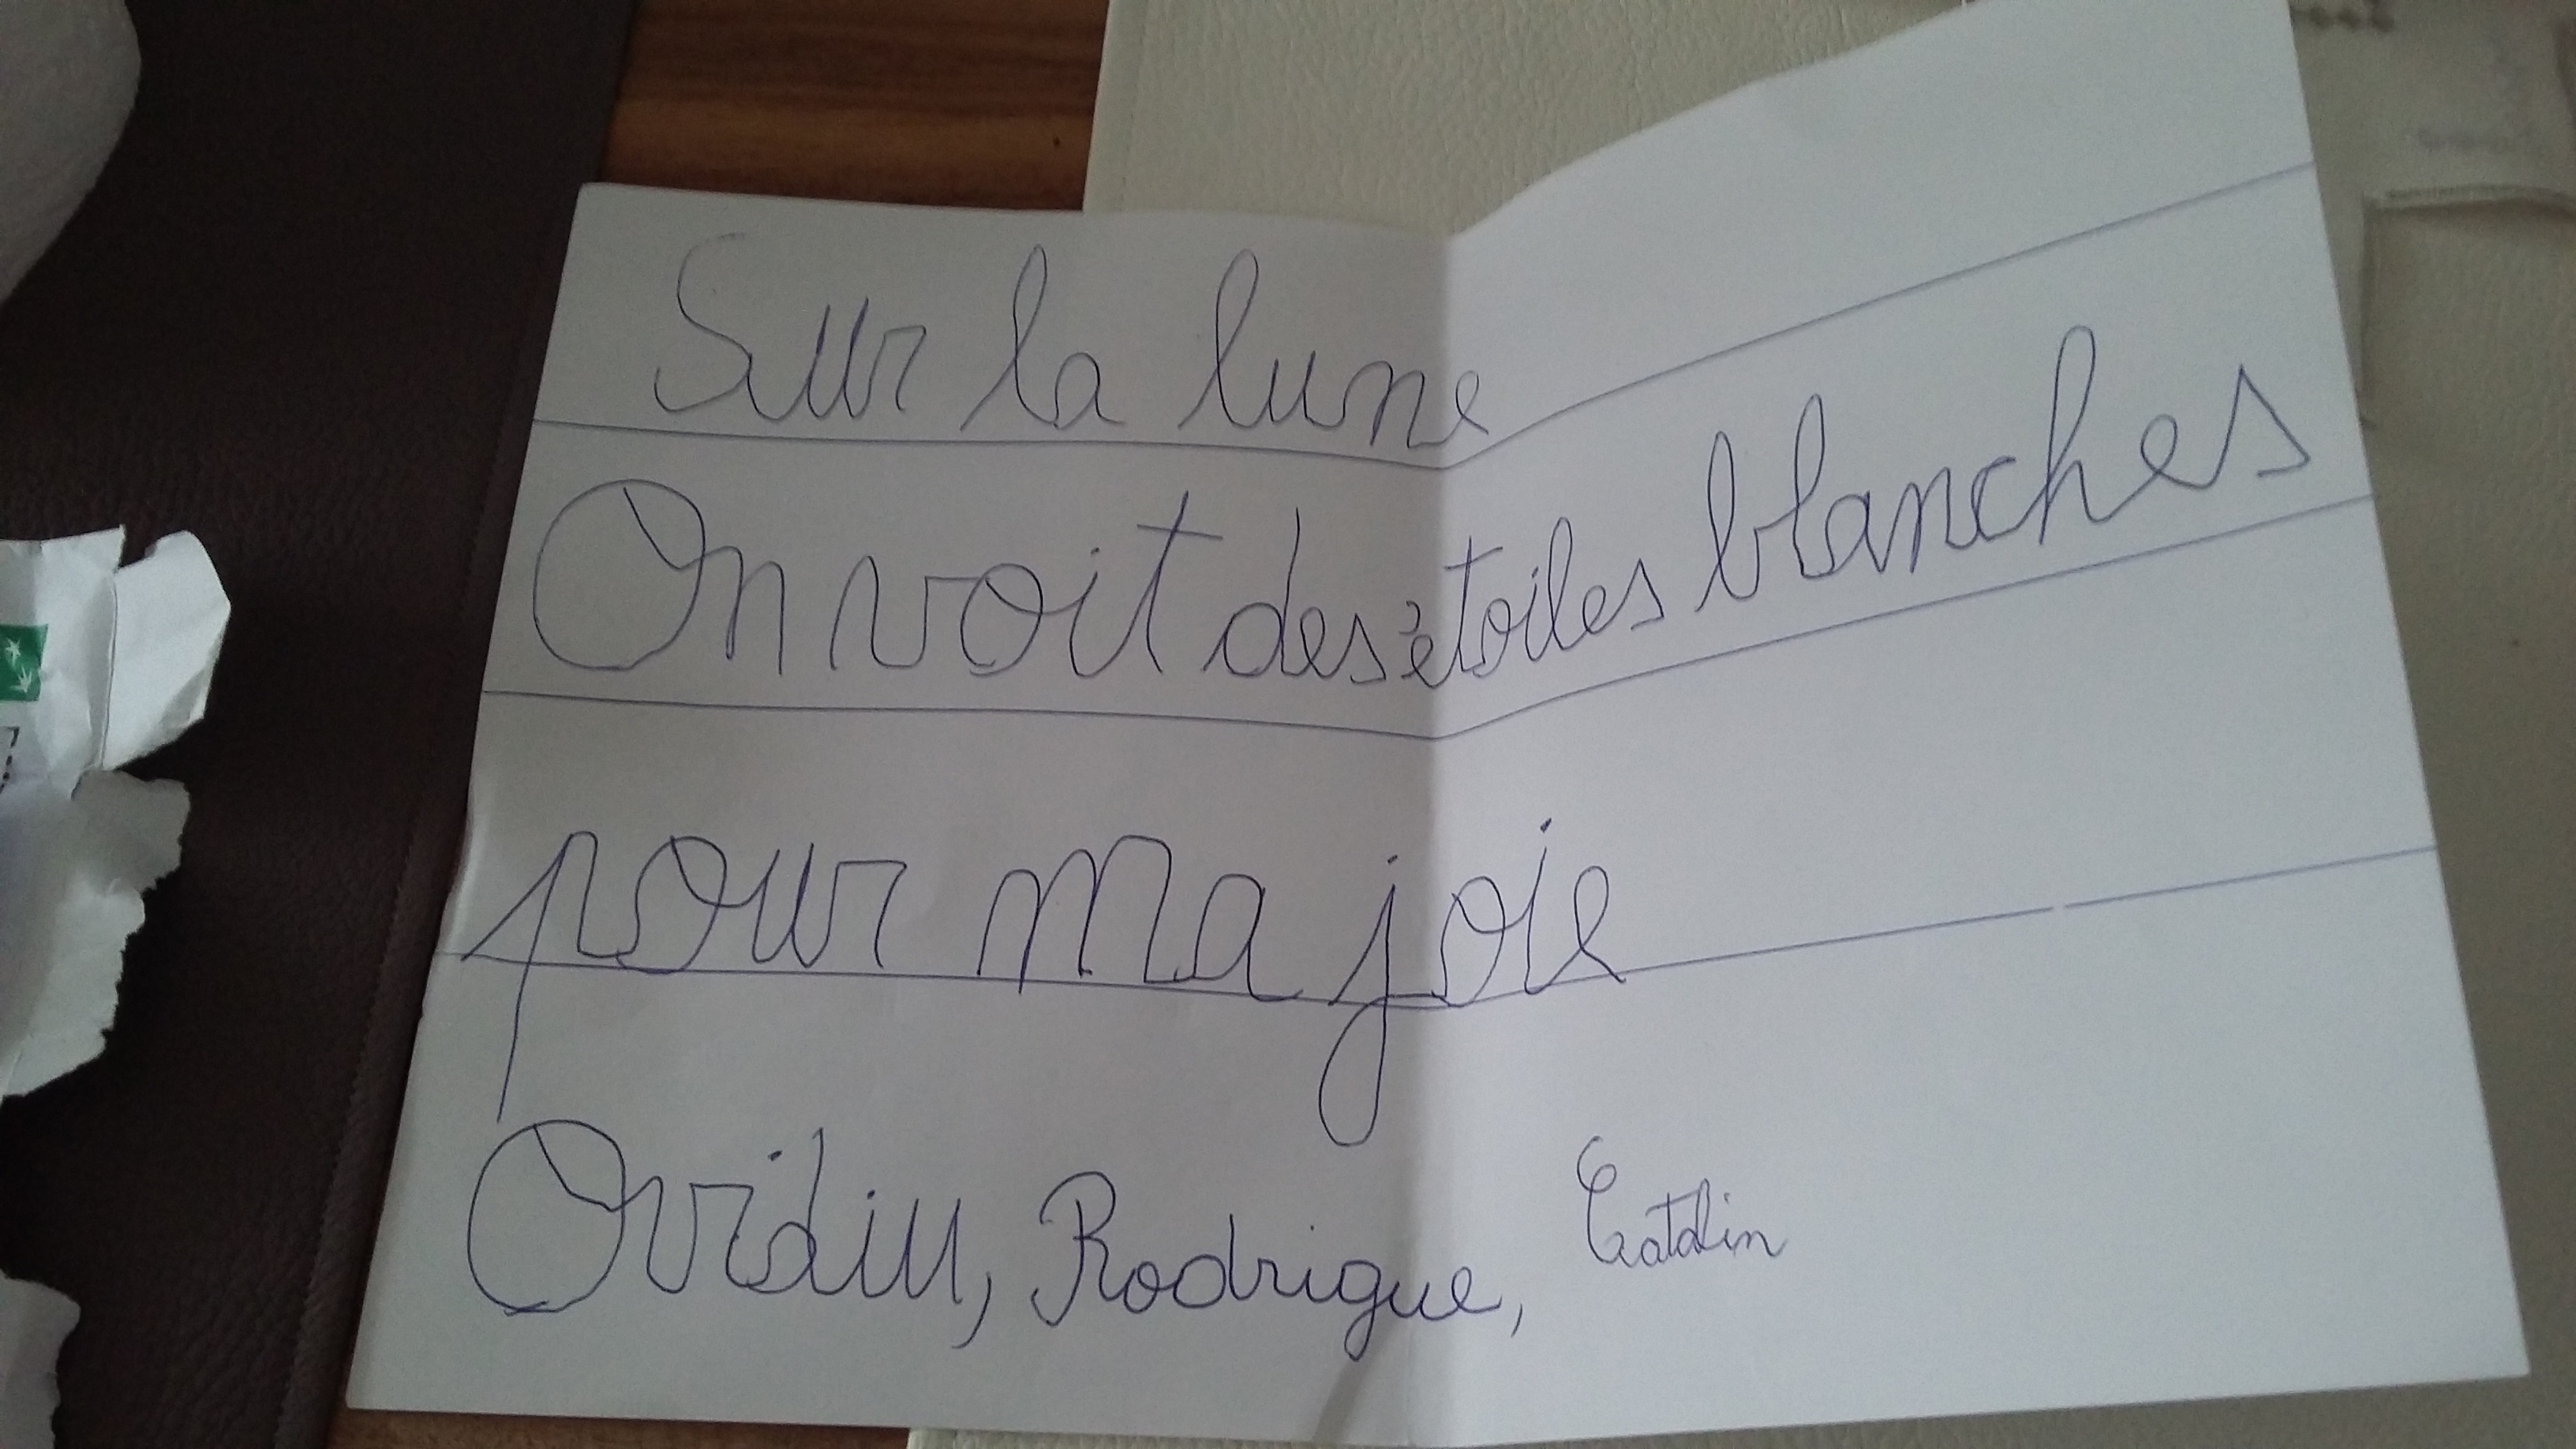 Sur la lune
On voit des étoiles blanches
pour ma joie
Ovidiu, Rodrigue, Catalin